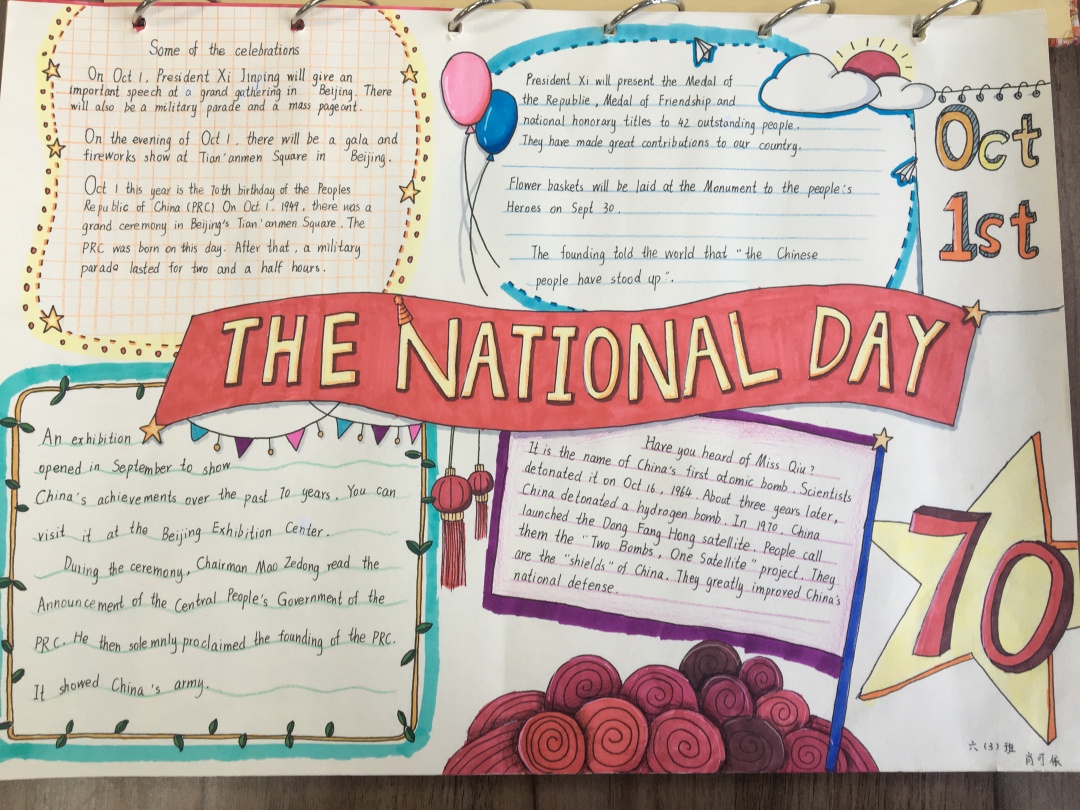 Some of the celebrations
On Oct 1, President Xi Jinping will give an
important speech at a grand gathering in Beijing. There
will also be a military parade and a mass pageant.
On the evening of Oct 1, there will be a gala and
fireworks show at Tian'anmen Square in Beijing.
Oct 1 this year is the 70th birthday of the Peoples
Republic of China (PRC) On Oct 1, 1949, there was a
grand ceremony in Beijing's Tian'anmen Square. The
PRC was born on this day. After that, a military
parade lasted for two and a half hours.
President Xi will present the Medal of
the Republie, Medal of Friendship and
national honorary titles to 42 outstanding people.
They have made great contributions to our country.
Flower baskets will be laid at the Monument to the people's
Heroes on Sept 30.
The founding told the world that "the Chinese
people have stood up".
Oct
1st
THE NATIONAL DAY
An exhibition
opened in September to show
China's achievements over the past 70 years. You can
visit it at the Beijing Exhibition Center.
During the ceremony, Chairman Mao Zedong read the
Announcement of the Central People's Government of the
PRC. He then solemnly proclaimed the founding of the PRC.
It showed China's army.
Have you heard of Miss Qiu?
It is the name of China's first atomic bomb. Scientists
detonated it on Oct 16, 1964. About three years later,
China detonated a hydrogen bomb. In 1970, China
launched the Dong Fang Hong satellite. People call
them the "Two Bombs, One Satellite" project. They
are the "shields" of China. They greatly improved China's
national defense.
70
六(3)班
肖可依